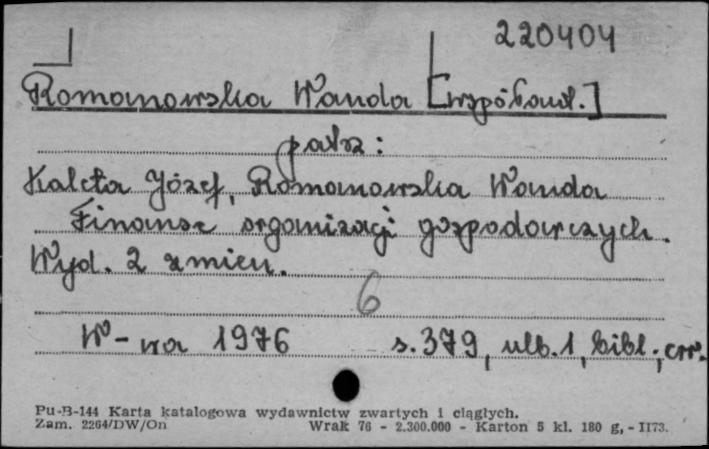 220404
Romanowska Wanda [współaut.]
patrz:
Kaleta Józef, Romanowska Wanda
Finanse organizacji gospodarczych.
Wyd. 2 zmien.
6
W-wa 1976 s. 379, ulb. 1, bibl.;
Pu-B-144 Karta katalogowa wydawnictw zwartych i ciągłych.
Zam. 2264/DW/On Wrak 76 - 2.300.000 - Karton 5 kl. 180 g, - II73.